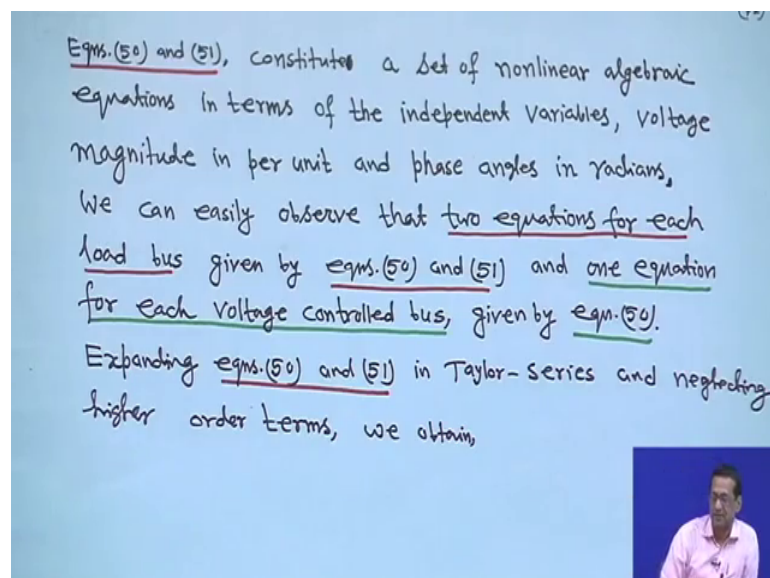 Eqns.(50) and (51), constitute a set of nonlinear algebraic
equations in terms of the independent variables, voltage
magnitude in per unit and phase angles in radians,
We can easily observe that two equations for each
load bus given by eqns.(50) and (51) and one equation
for each voltage controlled bus, given by eqn.(50).
Expanding eqns.(50) and (51) in Taylor-series and neglecting
higher order terms, we obtain,